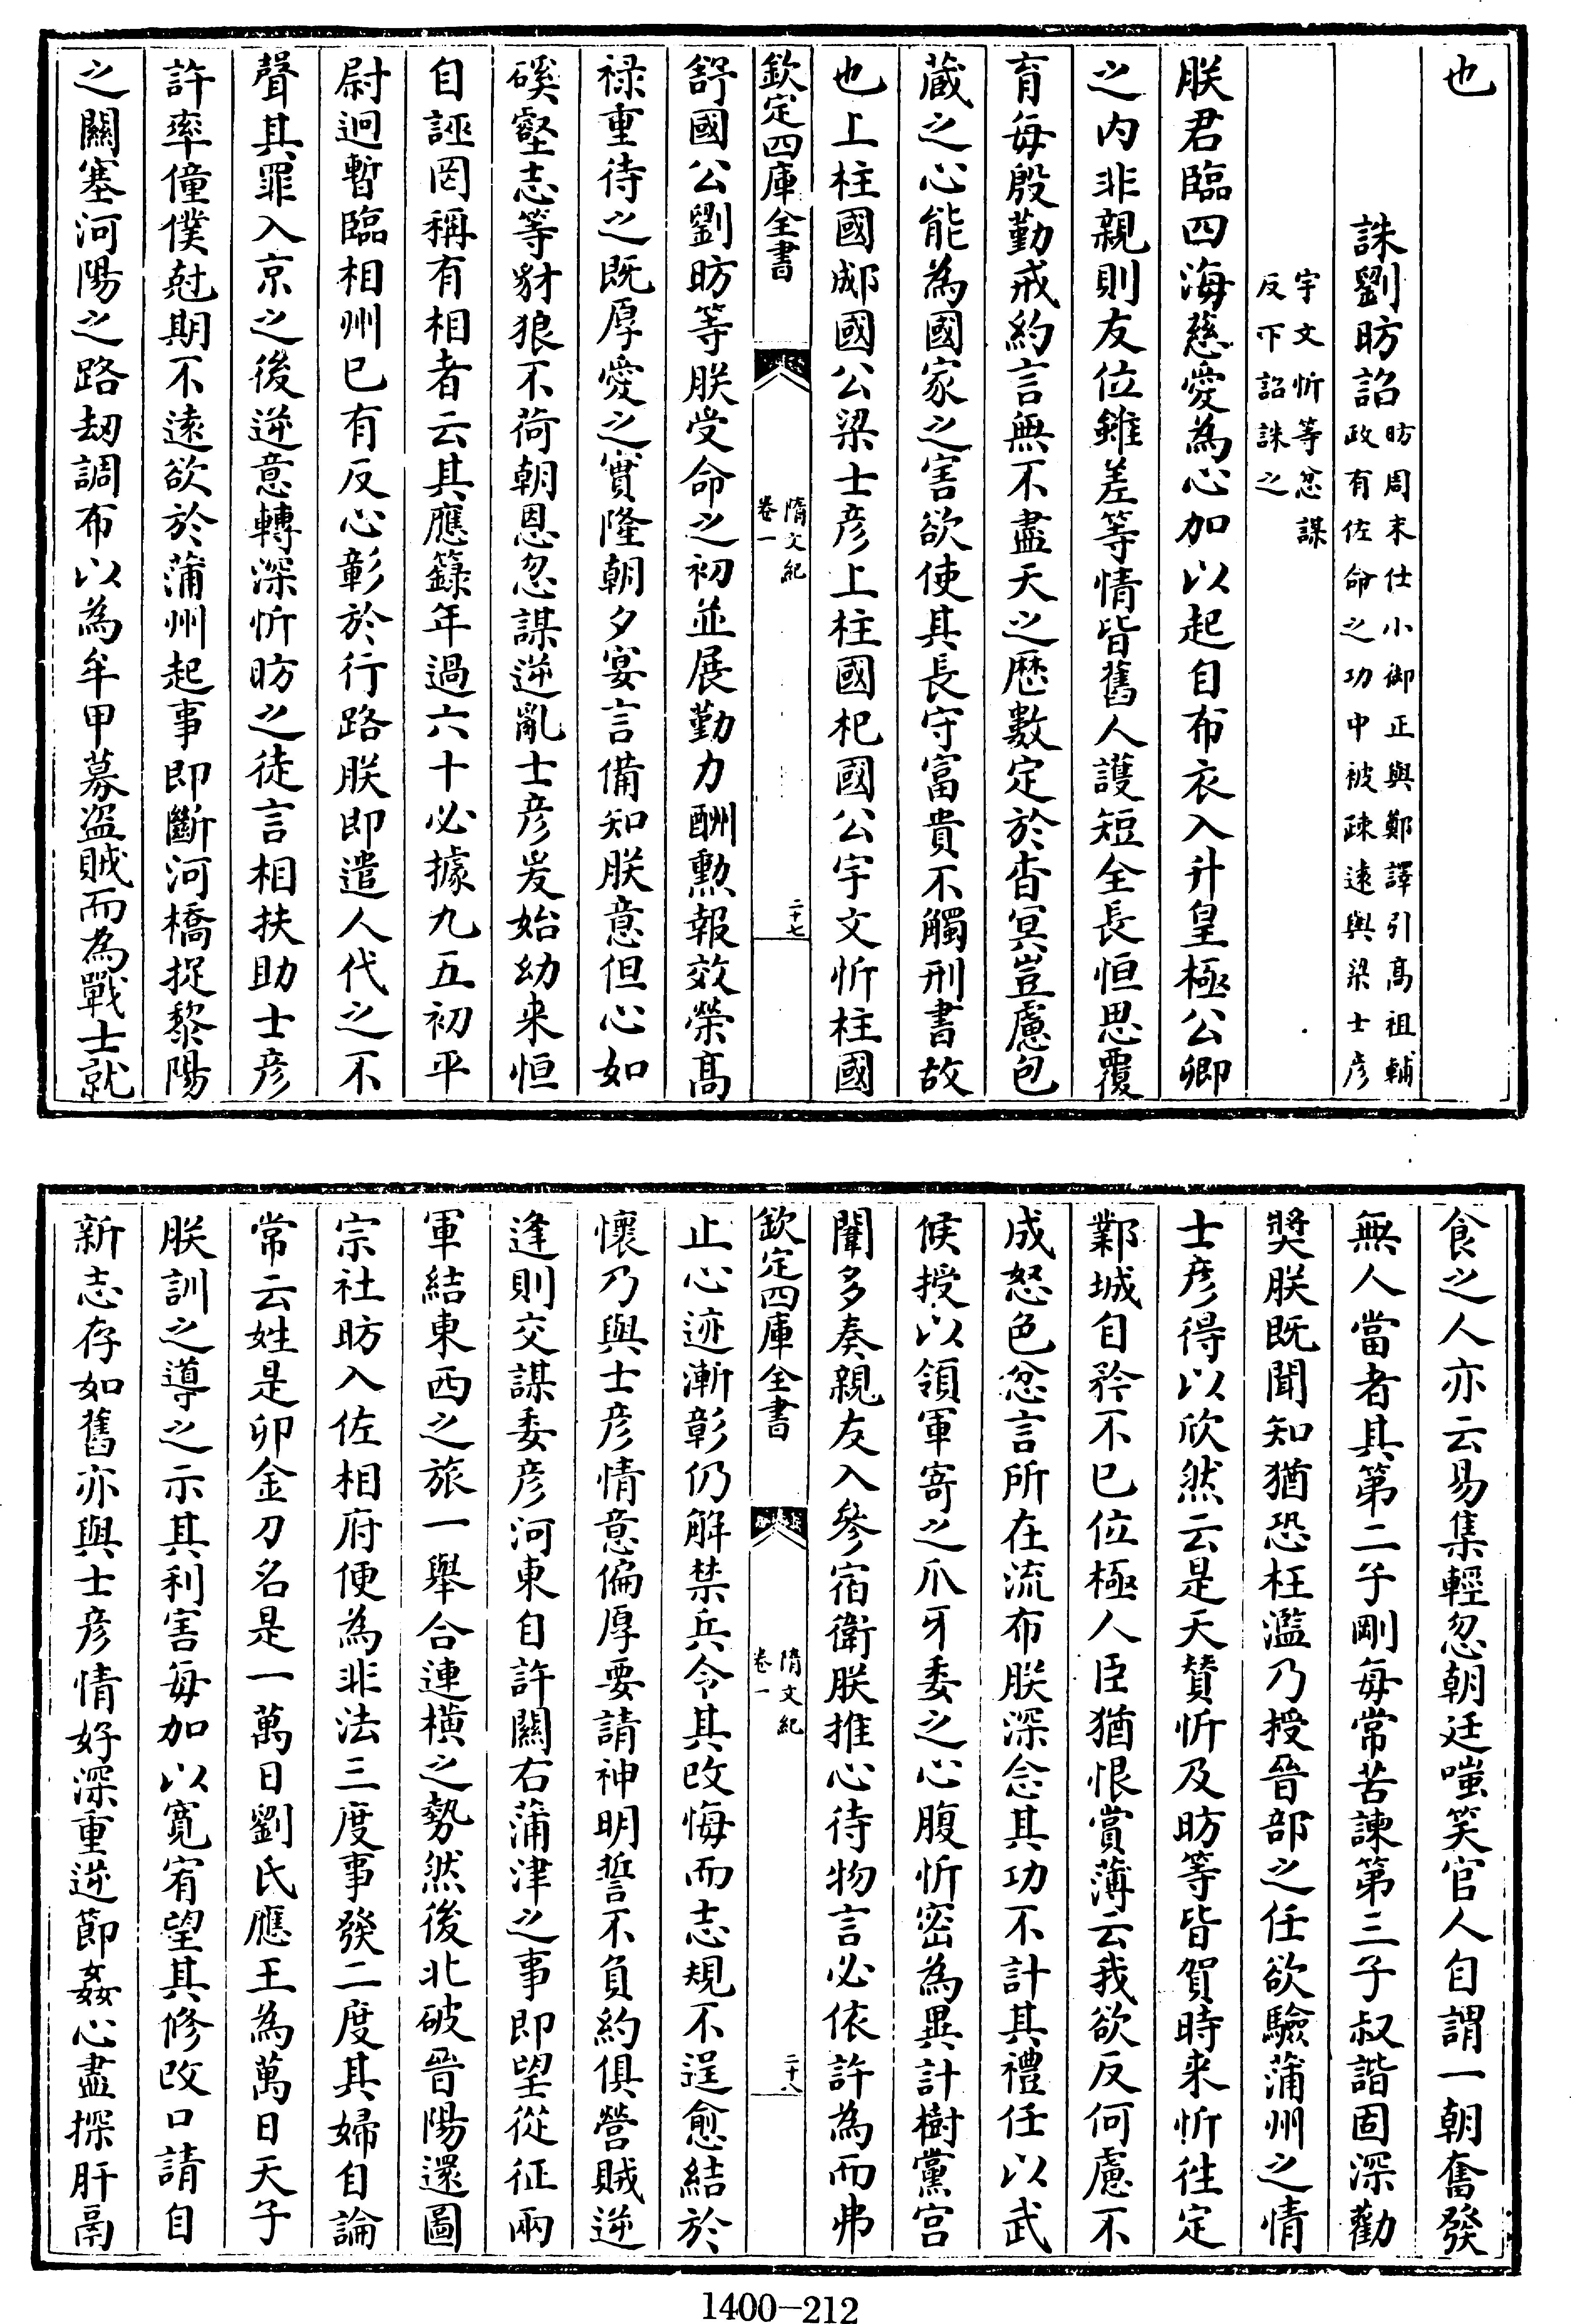 也
誅劉昉詔昉周末仕小御正與鄭譯引高祖輔政有佐命之功中被疎遠與梁士彦
宇文忻等忿謀反下詔誅之
朕君臨四海慈愛為心加以起自布衣入升皇極公卿
之内非親則友位雖差等情皆舊人護短全長恒思覆
育每殷勤戒約言無不盡天之歷數定於杳冥豈慮包
蔵之心能為國家之害欲使其長守富貴不觸刑書故
也上柱國郕國公梁士彦上柱國杞國公宇文忻柱國
欽定四庫全書
隋文紀
卷一
二十七
舒國公劉昉等朕受命之初並展勤力酬勲報效榮髙
禄重待之既厚愛之實隆朝夕宴言備知朕意但心如
磎壑志等豺狼不荷朝恩忽謀逆亂士彦爰始幼来恒
自誣罔稱有相者云其應籙年過六十必據九五初平
尉迥暫臨相州已有反心彰於行路朕即遣人代之不
聲其罪入京之後逆意轉深忻昉之徒言相扶助士彦
許率僮僕尅期不逺欲於蒲州起事即斷河橋捉黎陽
之關塞河陽之路刼調布以為牟甲募盗賊而為戰士就
食之人亦云易集輕忽朝廷嗤笑官人自謂一朝奮發
無人當者其第二子剛每常苦諫第三子叔諧固深勸
奬朕既聞知猶恐枉濫乃授晉部之任欲驗蒲州之情
士彦得以欣然云是天賛忻及昉等皆賀時来忻徃定
鄴城自矜不已位極人臣猶恨賞薄云我欲反何慮不
成怒色忿言所在流布朕深念其功不計其禮任以武
候授以領軍寄之爪牙委之心腹忻密為異計樹黨宫
闈多奏親友入參宿衛朕推心待物言必依許為而弗
欽定四庫全書
隋文紀
卷一
二十八
止心迹漸彰仍解禁兵令其改悔而志規不逞愈結於
懷乃與士彦情意偏厚要請神明誓不負約俱營賊逆
逢則交謀委彦河東自許關右蒲津之事即望從征兩
軍結東西之旅一舉合連横之勢然後北破晉陽還圖
宗社昉入佐相府便為非法三度事發二度其婦自論
常云姓是卯金刀名是一萬日劉氏應王為萬日天子
朕訓之導之示其利害每加以寛宥望其修改口請自
新志存如舊亦與士彦情好深重逆節姦心盡探肝鬲
1400-212